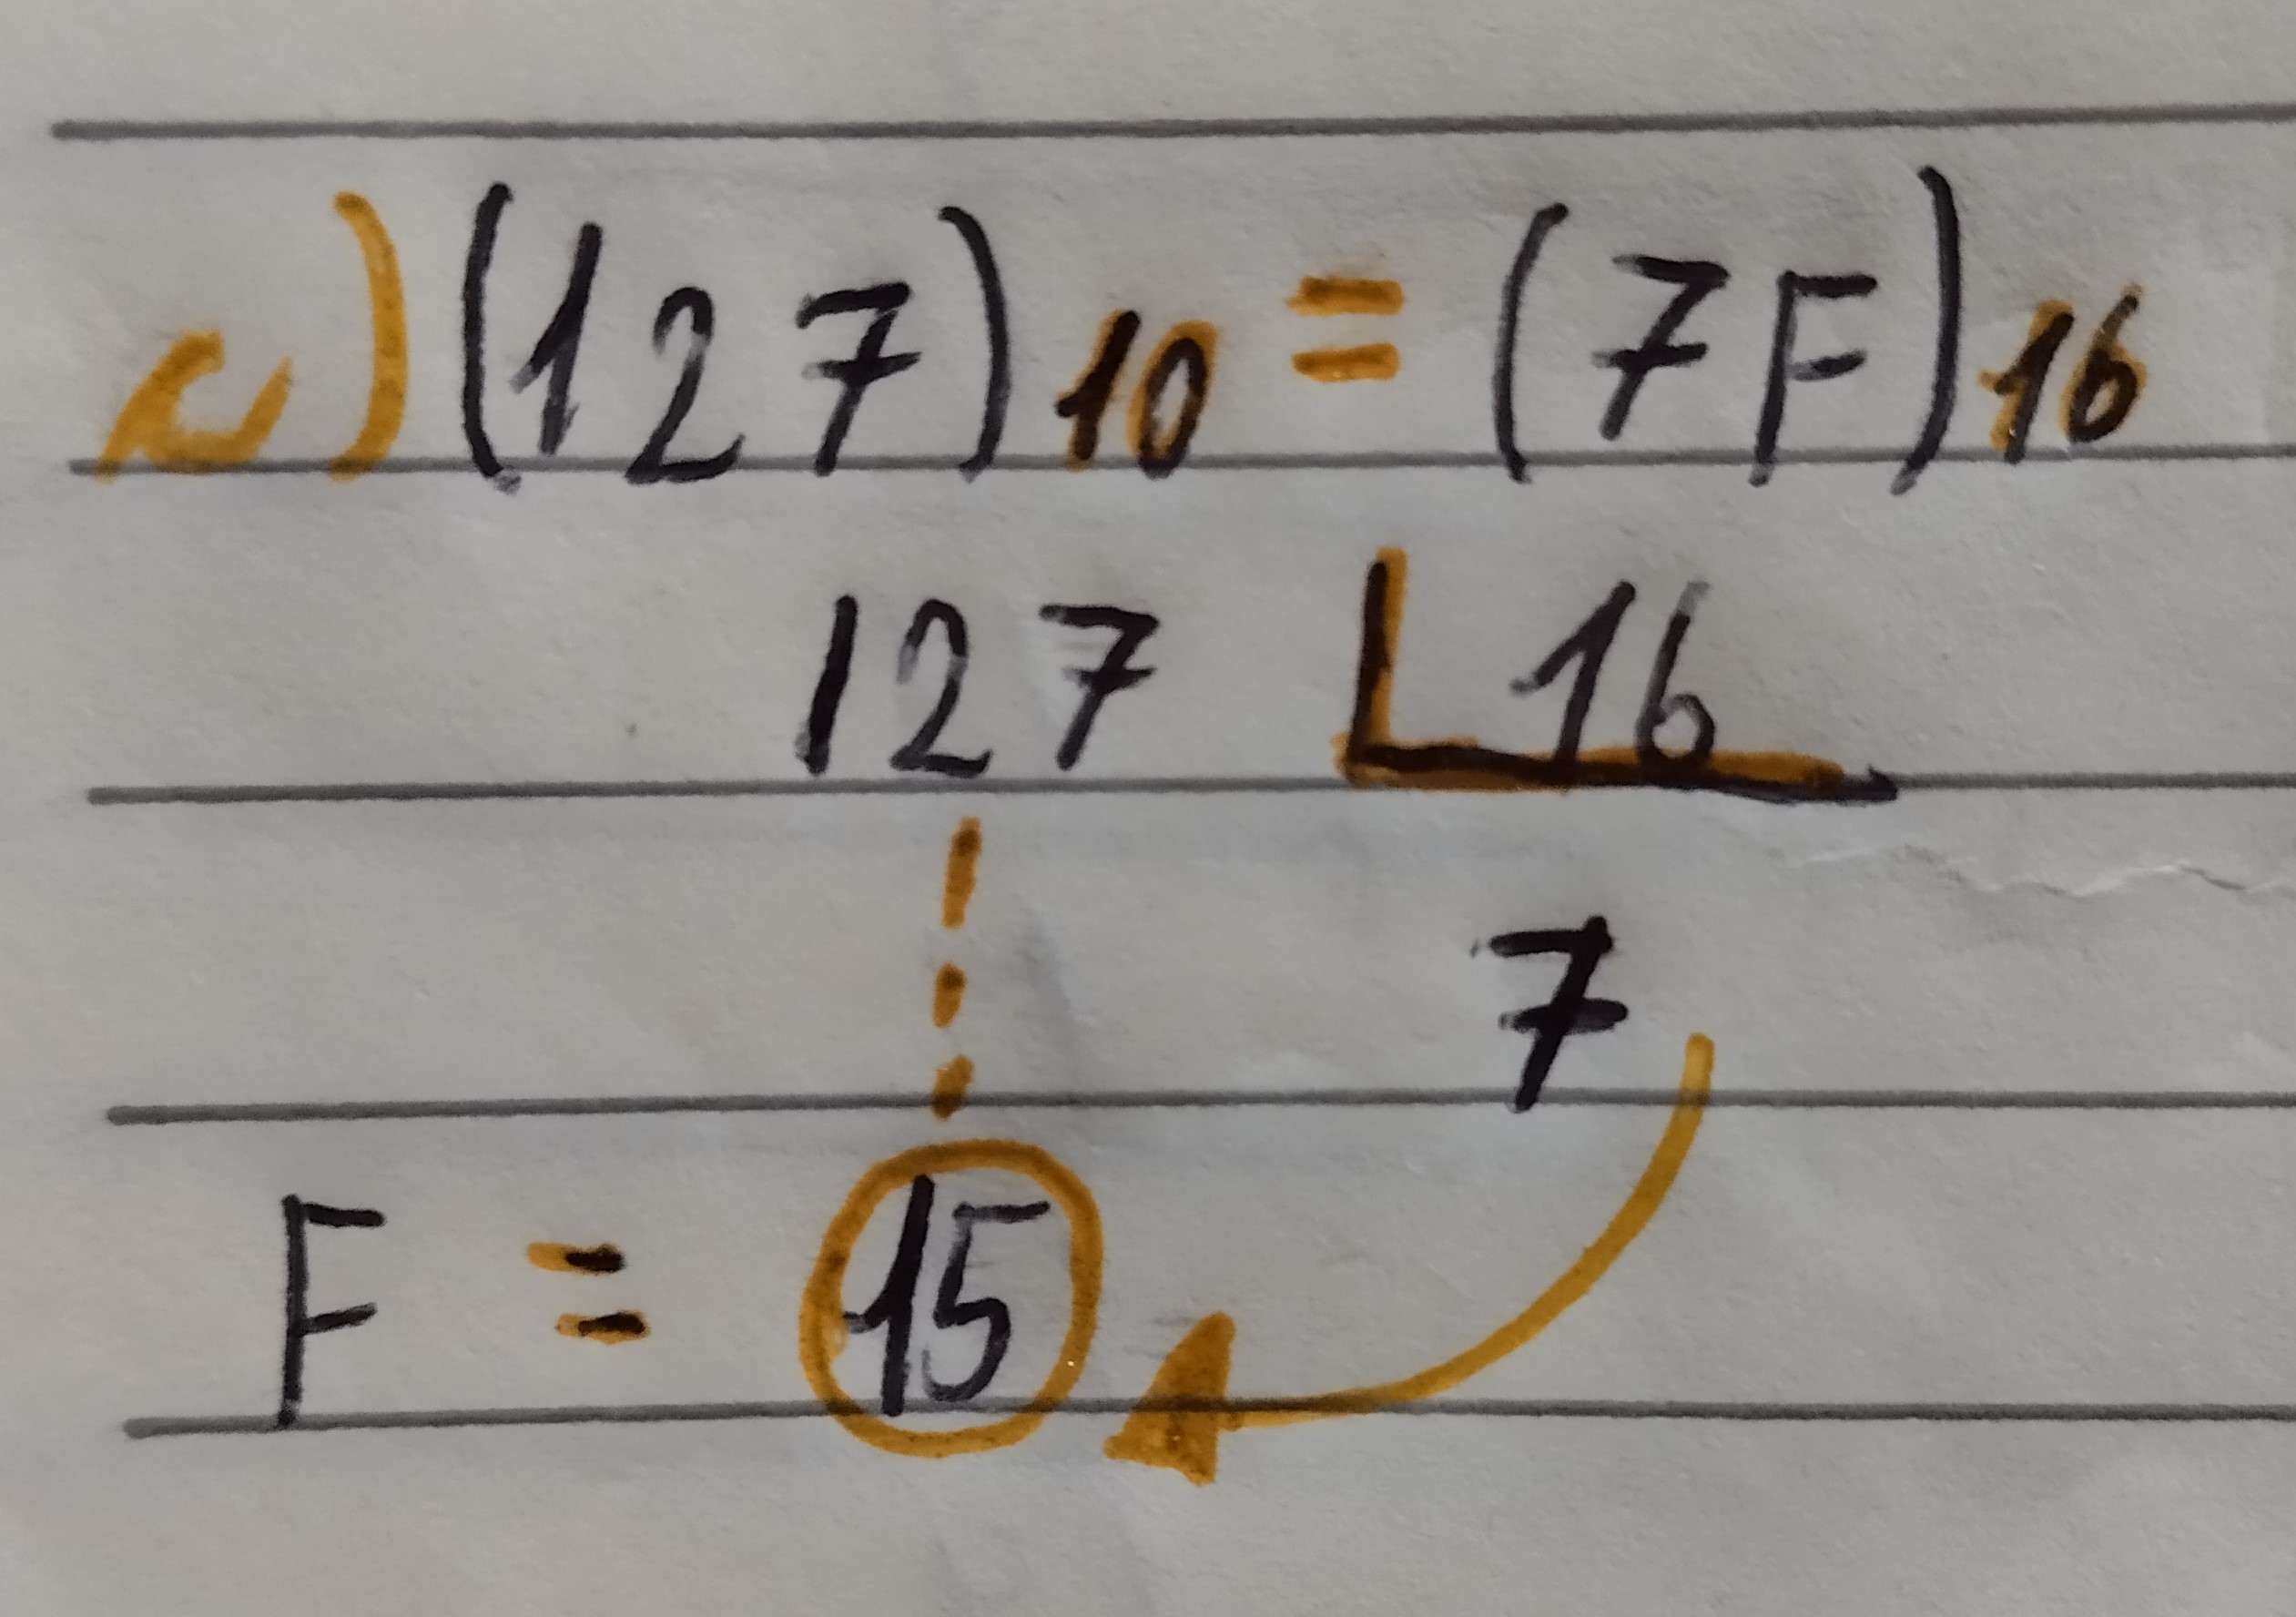 c) (127)10 = (7F)16
127 16
7
F = 15